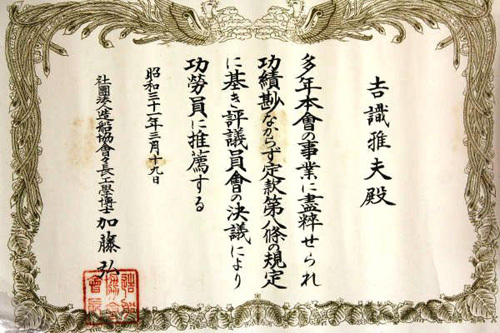 吉識雅夫殿
多年本會の事業に盡粹せられ
功績尠なからず定款第八條の規定
に基き評議員會の決議により
功勞員に推薦する
昭和三十一年三月十九日
社團法人造船協會會長工學博士 加藤弘
造船協會會長